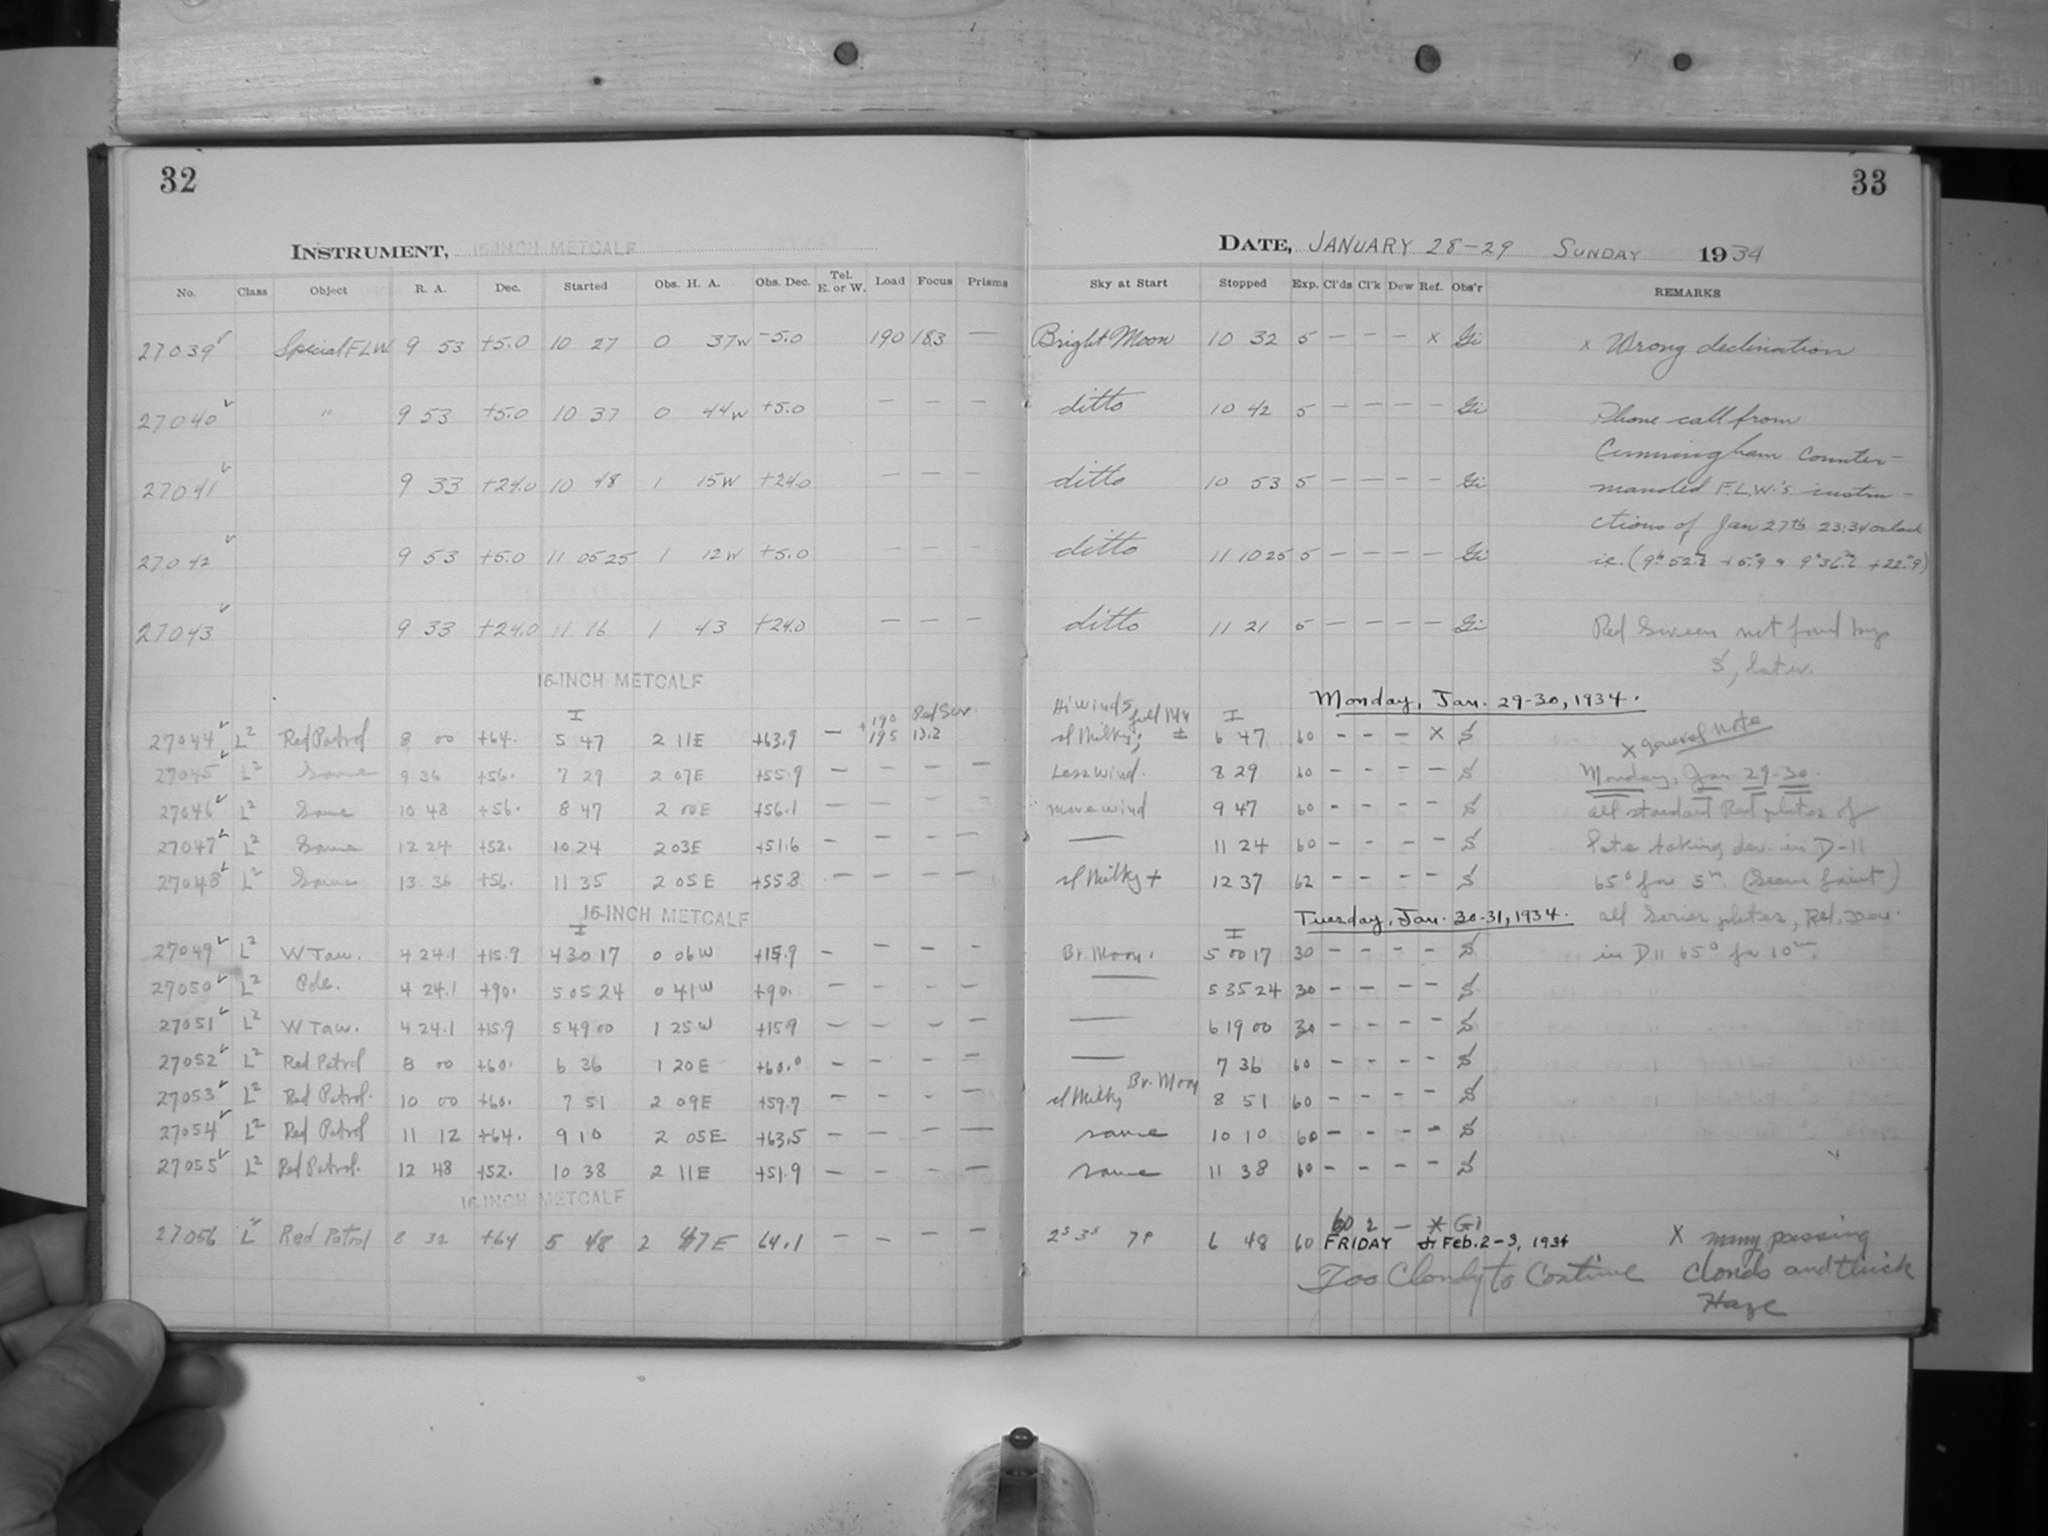 32
33
INSTRUMENT, 16-INCH METCALF
DATE, JANUARY 28-29 SUNDAY 1934
No. Class Object R. A. Dec. Started Obs. H. A. Obs. Dec. Tel. E. or W. Load Focus Prisms Sky at Start Stopped Exp. Cl'ds Cl'k Dew Ref. Obs'r REMARKS
27039 ✓ Special F.L.W. 9 53 +5.0 10 27 0 37W -5.0 190 18.3 — Bright Moon 10 32 5 — — — x Gi x Wrong declination
27040 ✓ " 9 53 +5.0 10 37 0 44W +5.0 — — — ditto 10 42 5 — — — — Gi Phone call from
Cunningham Counter-
27041 ✓ 9 33 +24.0 10 48 1 15W +24.0 — — — ditto 10 53 5 — — — — Gi manded F.L.W.'s instru-
ctions of Jan 27th 23:34 oclock
27042 ✓ 9 53 +5.0 11 05 25 1 12W +5.0 — — — ditto 11 10 25 5 — — — — Gi ie. (9h 52.2 +5.9 9h 36. +22.9)
27043 ✓ 9 33 +24.0 11 16 1 43 +24.0 — — — ditto 11 21 5 — — — — Gi Red Screen not found by
S, later.
16-INCH METCALF
Monday, Jan. 29-30, 1934.
27044 ✓ L2 Red Patrol 8 00 +64. I 5 47 2 11E +63.9 — +190 195 Red Scr. 13.2 Hi winds, sl Milky; ± I 6 47 60 — — — X S x General Note
27045 ✓ L2 Same 9 36 +56. 7 29 2 07E +55.9 — — — — Less wind. 8 29 60 — — — — S Monday, Jan 29-30.
27046 ✓ L2 Same 10 48 +56. 8 47 2 00E +56.1 — — — — more wind 9 47 60 — — — — S all standard Red plates of
27047 ✓ L2 Same 12 24 +52. 10 24 2 03E +51.6 — — — — — 11 24 60 — — — — S late taking dev. in D-11
27048 ✓ L2 Same 13 36 +56. 11 35 2 05E +55.8 — — — — sl Milky + 12 37 62 — — — — S 65° for 5m. (Seem faint)
16-INCH METCALF
Tuesday, Jan. 30-31, 1934. all Series plates, Rel. Dev.
27049 ✓ L2 W Tau. 4 24.1 +15.9 I 4 30 17 0 06W +15.9 — — — — Br. Moon. I 5 00 17 30 — — — — S in D11 65° for 10m.
27050 ✓ L2 Pole. 4 24.1 +90. 5 05 24 0 41W +90. — — — — — 5 35 24 30 — — — — S
27051 ✓ L2 W Tau. 4 24.1 +15.9 5 49 00 1 25W +15.9 — — — — — 6 19 00 30 — — — — S
27052 ✓ L2 Red Patrol 8 00 +60. 6 36 1 20E +60.0 — — — — — 7 36 60 — — — — S
27053 ✓ L2 Red Patrol. 10 00 +60. 7 51 2 09E +59.7 — — — — sl Milky Br. Moon 8 51 60 — — — — S
27054 ✓ L2 Red Patrol 11 12 +64. 9 10 2 05E +63.5 — — — — same 10 10 60 — — — — S
27055 ✓ L2 Red Patrol. 12 48 +52. 10 38 2 11E +51.9 — — — — same 11 38 60 — — — — S
16-INCH METCALF
60 2 — * Gi
27056 L Red Patrol 8 32 +64 5 48 2 47E 64.1 — — — — 2s 3s 7P 6 48 60 FRIDAY Feb. 2-3, 1934 X many passing
Too Cloudy to Continue clouds and thick
Haze